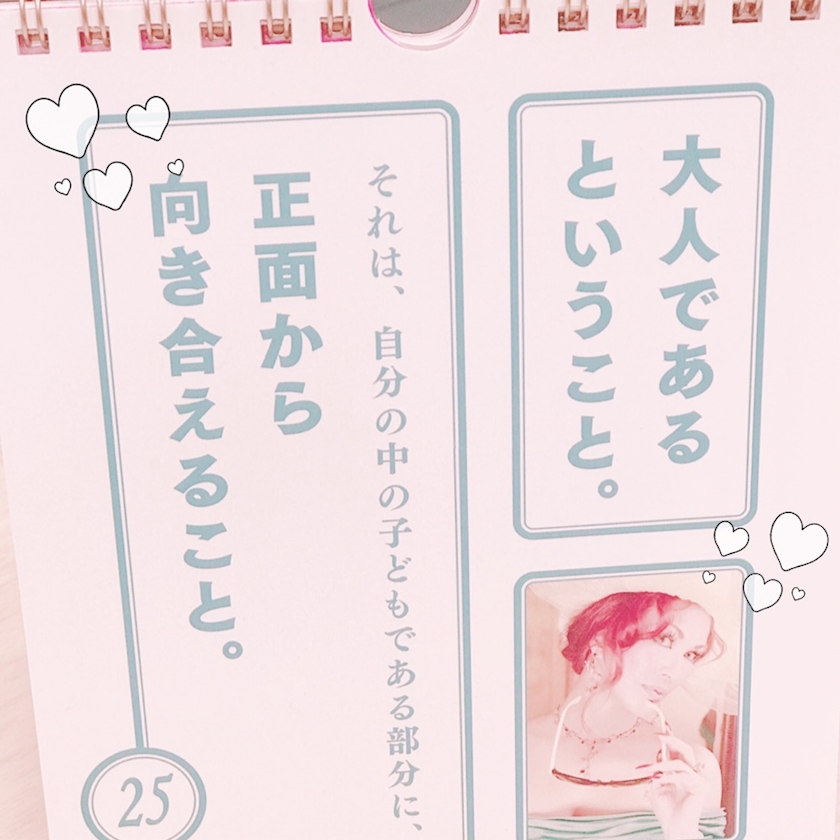 大人である
ということ。
それは、自分の中の子どもである部分に、
正面から
向き合えること。
25